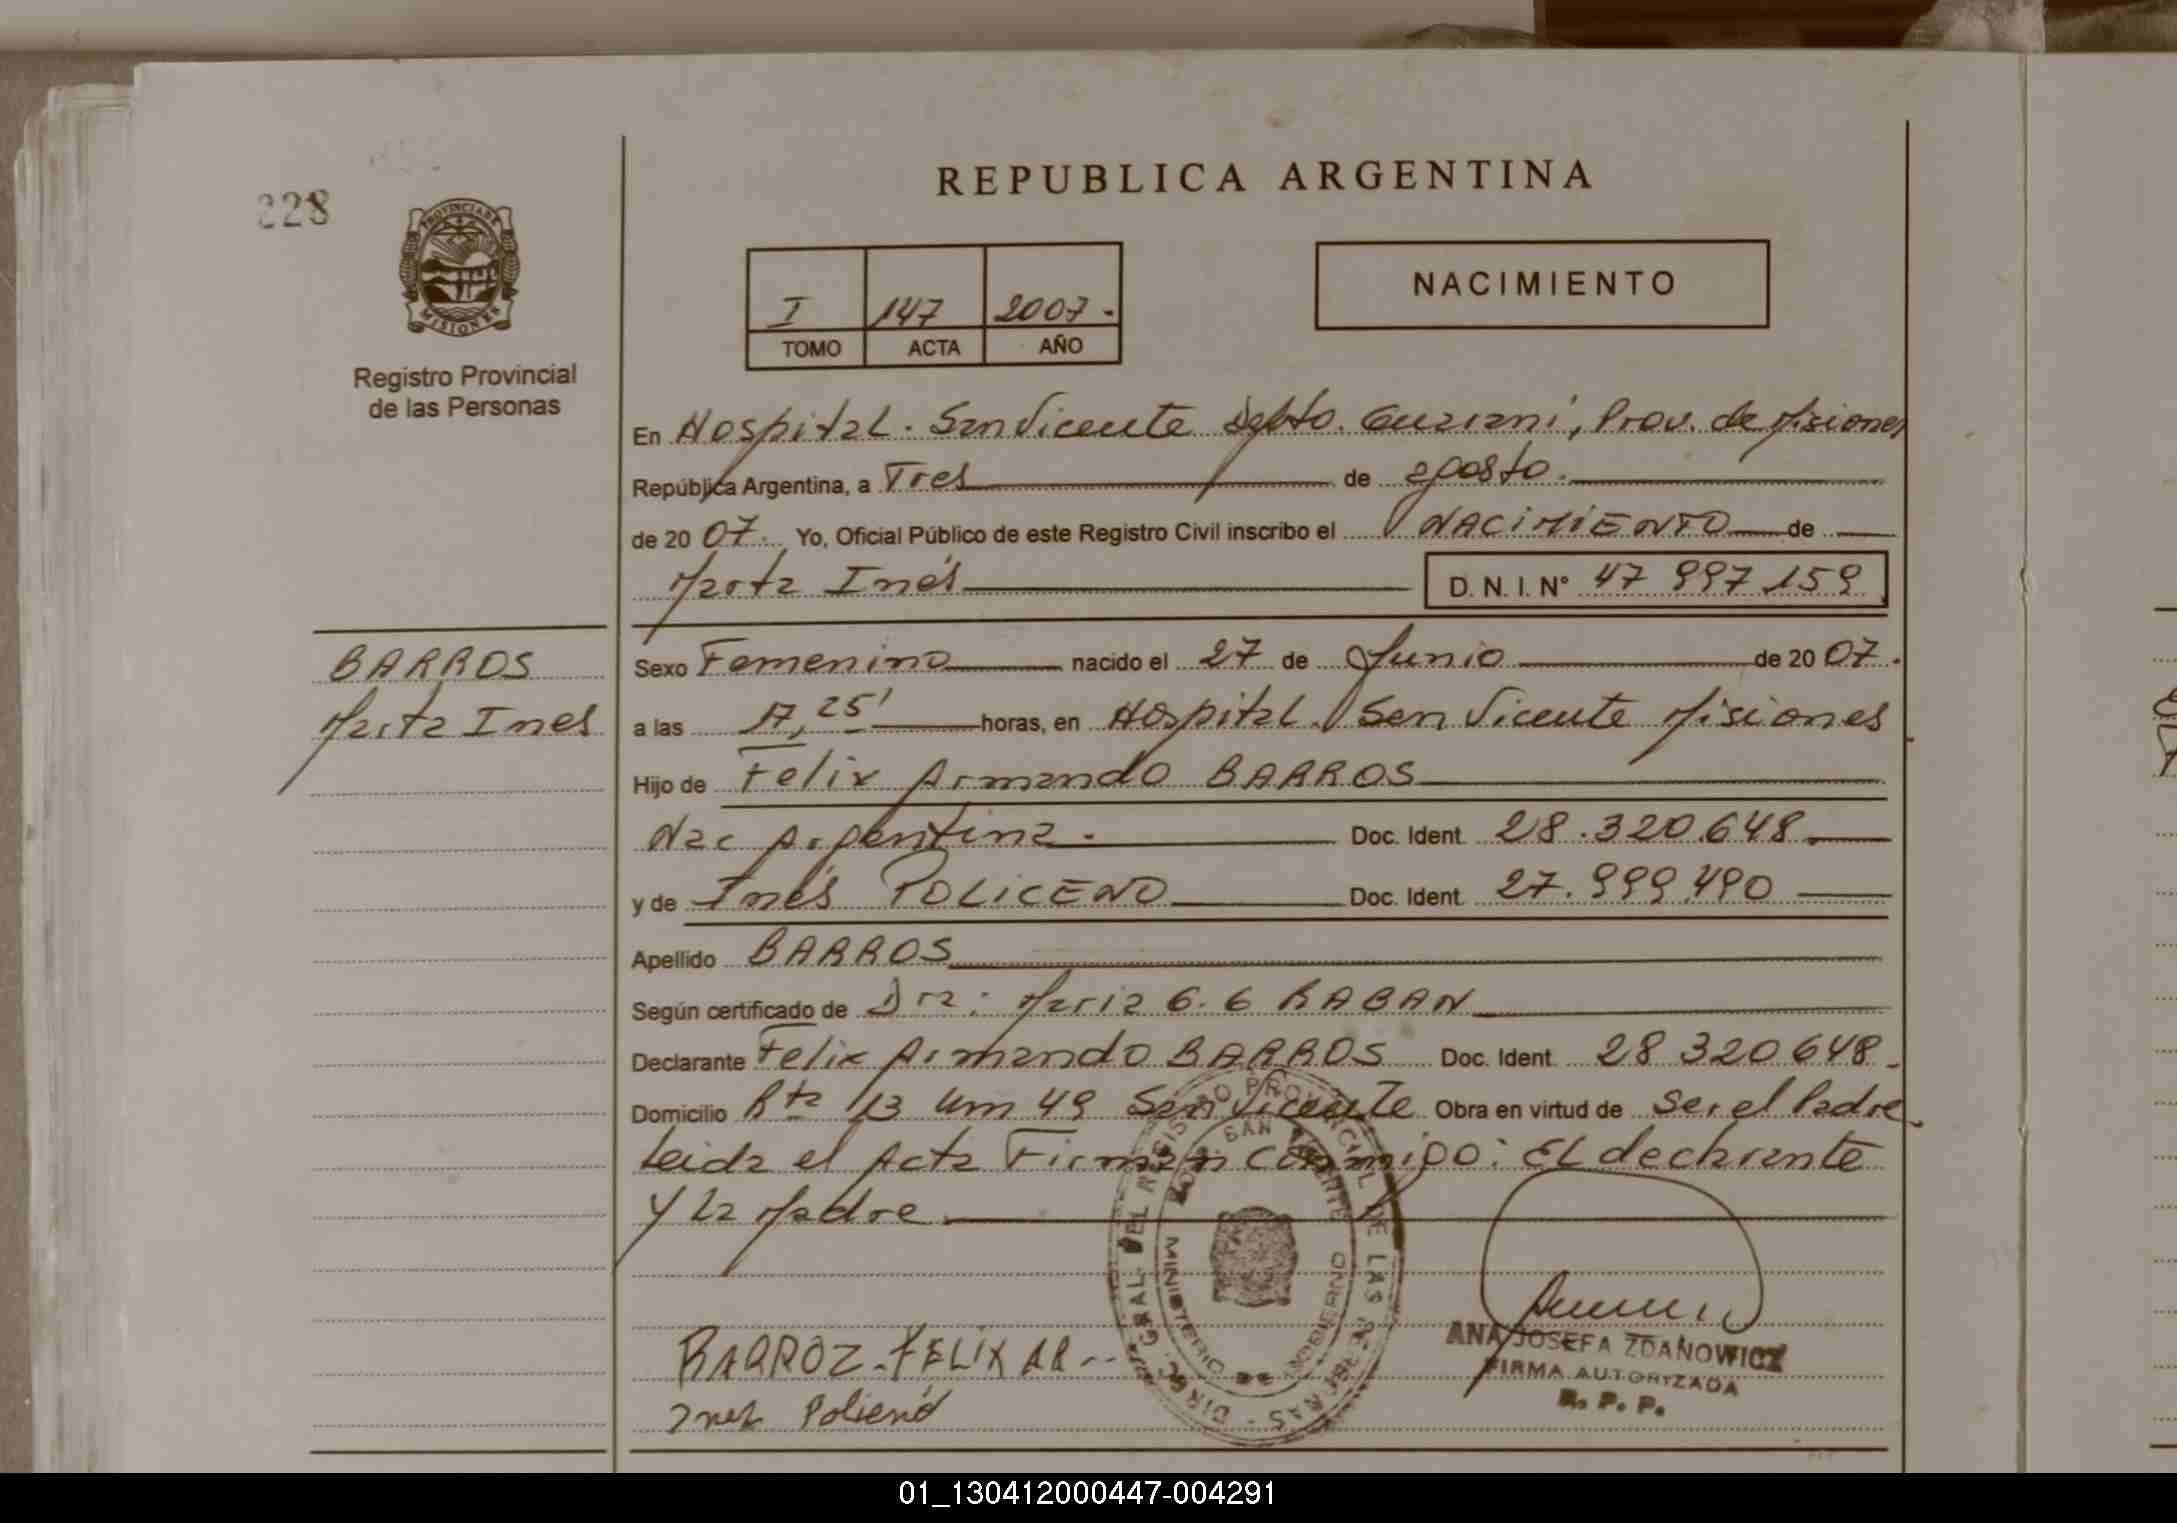 228
PROVINCIA DE
MISIONES
Registro Provincial
de las Personas
REPUBLICA ARGENTINA
I 147 2007.
TOMO ACTA AÑO
NACIMIENTO
En Hospital. San Vicente Dpto. Guarani, Prov. de Misiones
República Argentina, a Tres de agosto.
de 2007. Yo, Oficial Público de este Registro Civil inscribo el NACIMIENTO de
Marta Inés D. N. I. N° 47 997 159
BARROS
Marta Ines
Sexo Femenino nacido el 27 de Junio de 2007.
a las 17,25' horas, en Hospital. San Vicente Misiones
Hijo de Felix Armando BARROS
Nac Argentina. Doc. Ident. 28.320.648
y de Inés POLICENO Doc. Ident. 27.999.490
Apellido BARROS
Según certificado de Dra: Maria G. G RABAN
Declarante Felix Armando BARROS Doc. Ident. 28 320 648
Domicilio Rta 13 Km 49 San Vicente Obra en virtud de Ser el Padre
Leida el Acta Firman conmigo: El declarante
Y la Madre
DIREC. GRAL. DEL REGISTRO PROVINCIAL DE LAS PERSONAS
SAN VICENTE
MINISTERIO DE GOBIERNO
BARROZ-FELIX AR--
Inez
ANA JOSEFA ZDANOWICZ
FIRMA AUTORIZADA
R. P. P.
01_130412000447-004291